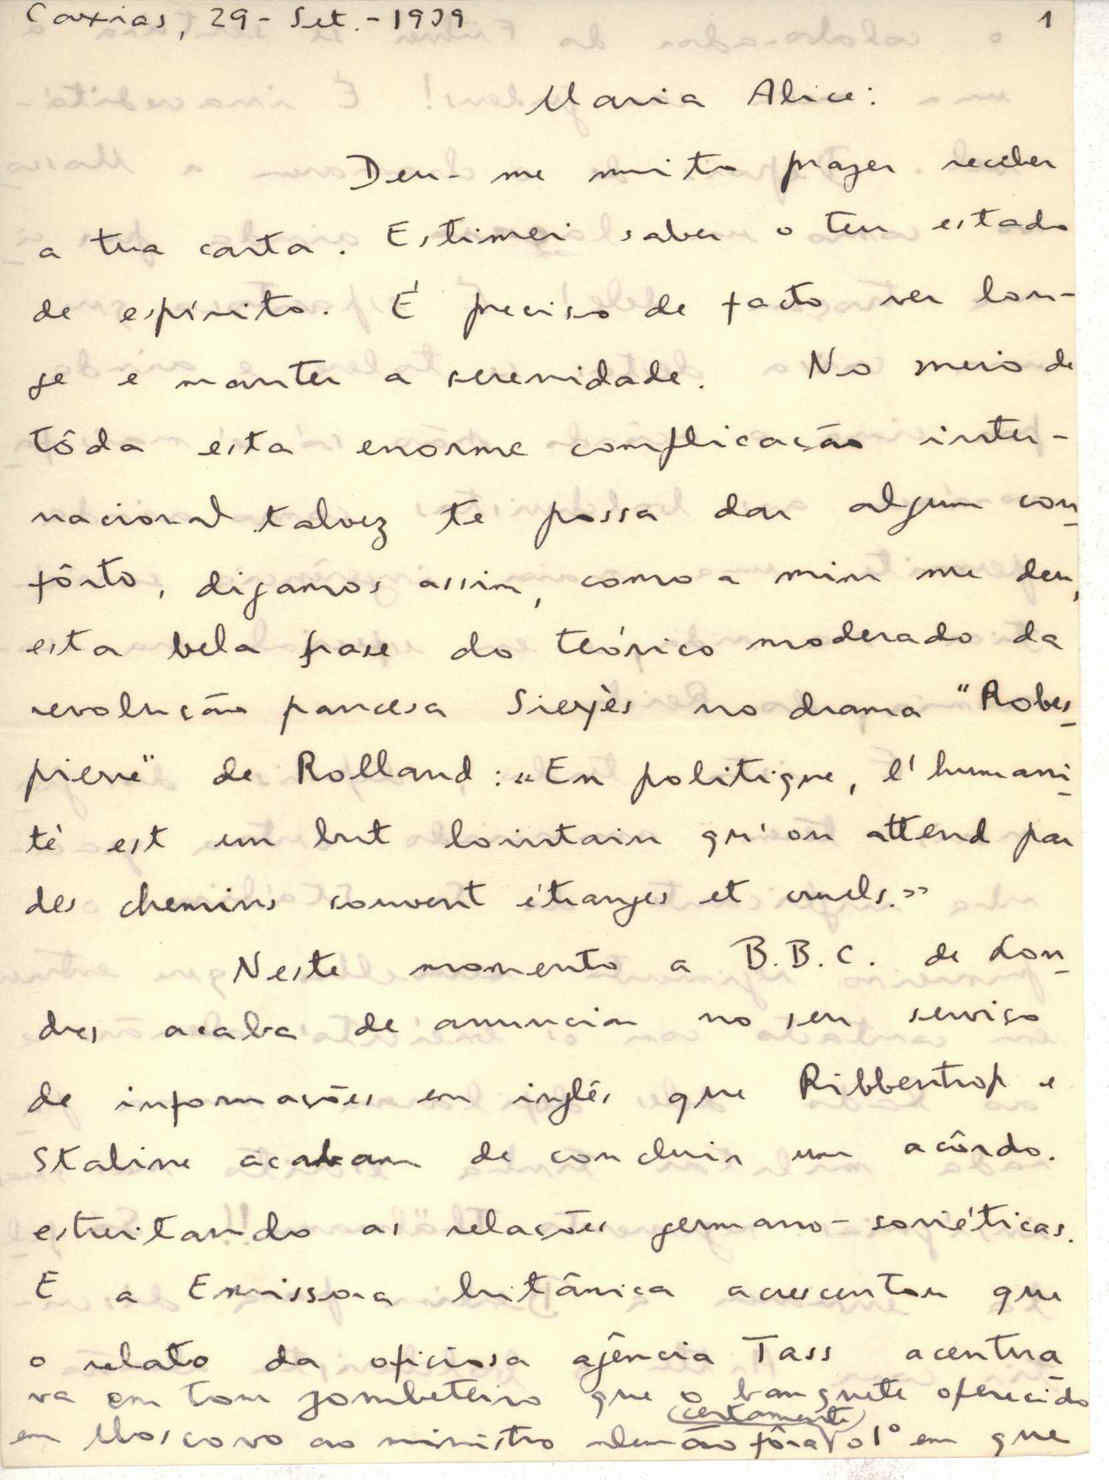 Caxias, 29 - Set. - 1939
1
Maria Alice:
Deu-me muito prazer receber
a tua carta. Estimei saber o teu estado
de espírito. É preciso de facto ver lon-
ge e manter a serenidade. No meio de
tôda esta enorme complicação inter-
nacional talvez te possa dar algum con-
fôrto, digamos assim, como a mim me deu,
esta bela frase do teórico moderado da
revolução francesa Sieyès no drama "Robes-
pierre" de Rolland: «En politique, l'humani-
té est un but lointain qu'on attend par
des chemins souvent étranges et cruels.»
Neste momento a B.B.C. de Lon-
dres acaba de anunciar no seu serviço
de informações em inglês que Ribbentrop e
Staline acabam de concluir um acôrdo.
estreitando as relações germano-soviéticas.
E a Emissora britânica acrescentou que
o relato da oficiosa agência Tass acentua
va em tom zombeteiro que o banquete oferecido
em Moscovo ao ministro alemão fôra (certamente) o 1º em que